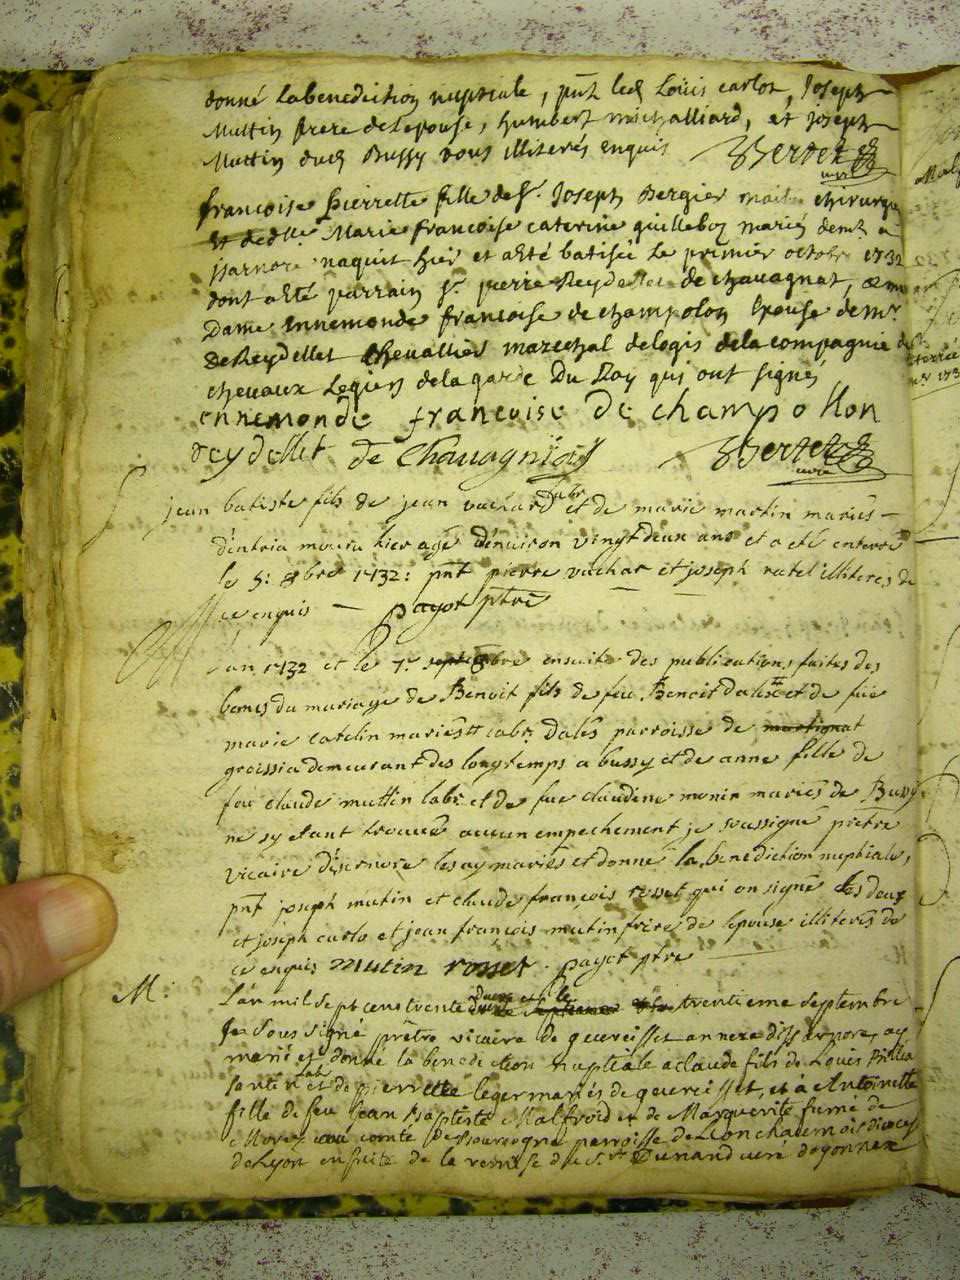 donné la benediction nuptiale, pnt led Louis carlot, Joseph
Muttin frere de lepouse, humbert michalliard, et joseph
Muttin dud Bussy tous illiterés enquis Bertet
curé
francoise Pierrette fille de sr. Joseph Bergier maitre chirurgien
et de dlle. Marie francoise caterine guilleboz mariés demts a
jsarnore naquit hier et a eté batisée le premier octobre 1732
dont a eté parrain sr. pierre Reydellet de chavagnat, et m
Dame Ennemonde francoise de champolon Epouse de mr
de Reydellet chevallier marechal delogis de la compagnie des
chevaux legiers de la garde Du Roy qui ont signés
ennemonde francoise de champollon
reydellet de Chavagniat Bertet
curé
jean batiste fils de jean vuchard labr et de marie martin mariés
d'intria mouru hier agé d'enuiron vingt deux ans et a eté enterré
le 5: 8bre 1732: pnt pierre vuchar et joseph ratel illiteres de
ce enquis payot ptre
Lan 1732 et le 7e 8bre ensuite des publications faites des
bancs du mariage de Benoit fils de feu Benoit dalés et de fue
marie catelin mariés labr. dalés parroisse de martignat
groissia demeurant des longtemps a bussy et de anne fille de
feu claude muttin labr. et de fue claudine monin mariés de Bussy
ne sy etant trouué aucun empechement je soussigné prêtre
vicaire d'isernore les ay mariés et donné la benediction nuptiale,
pnt joseph mutin et claude françois rosset qui on signé les deux
et joseph carlo et jean françois mutin frere de lepouse illiterés de
ce enquis mutin rosset. payot ptre
M: L'an mil sept cens trente deux et le trentieme septembre
je sous signé prêtre vicaire de geureisset annexe dissarnore, ay
marié et donné la benediction nuptiale a claude fils de Louis
labr et de pierrette leger mariés de geureisset, et à Antoinette
fille de feu Jean Baptiste Malfroid et de Marguerite fumé de
Morez au comté de Bourgogne parroisse de Lonchaumois diocese
de Lyon ensuite de la remise du sr. Dunand curé doyonnax